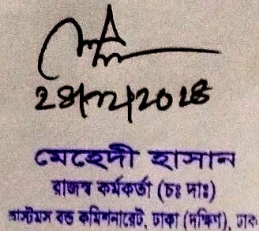 মেহেদী হাসান
রাজস্ব কর্মকর্তা (চঃ দাঃ)
কাস্টমস বন্ড কমিশনারেট, ঢাকা (দক্ষিণ), ঢাকা